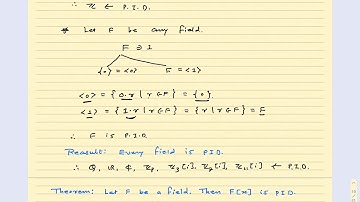 ∴ ℤ ← P.I.D.
* Let F be any field.
F ∋ I
{0} = <0> F = <1>
<0> = {0·r | r ∈ F} = {0}
<1> = {1·r | r ∈ F} = {r | r ∈ F} = F
∴ F is P.I.D
Result: Every field is PID.
∴ Q, R, ℂ, Zp, Z3[i], Z7[i], Z11[i] ← P.I.D.
Theorem: Let F be a field. Then F[x] is PID.